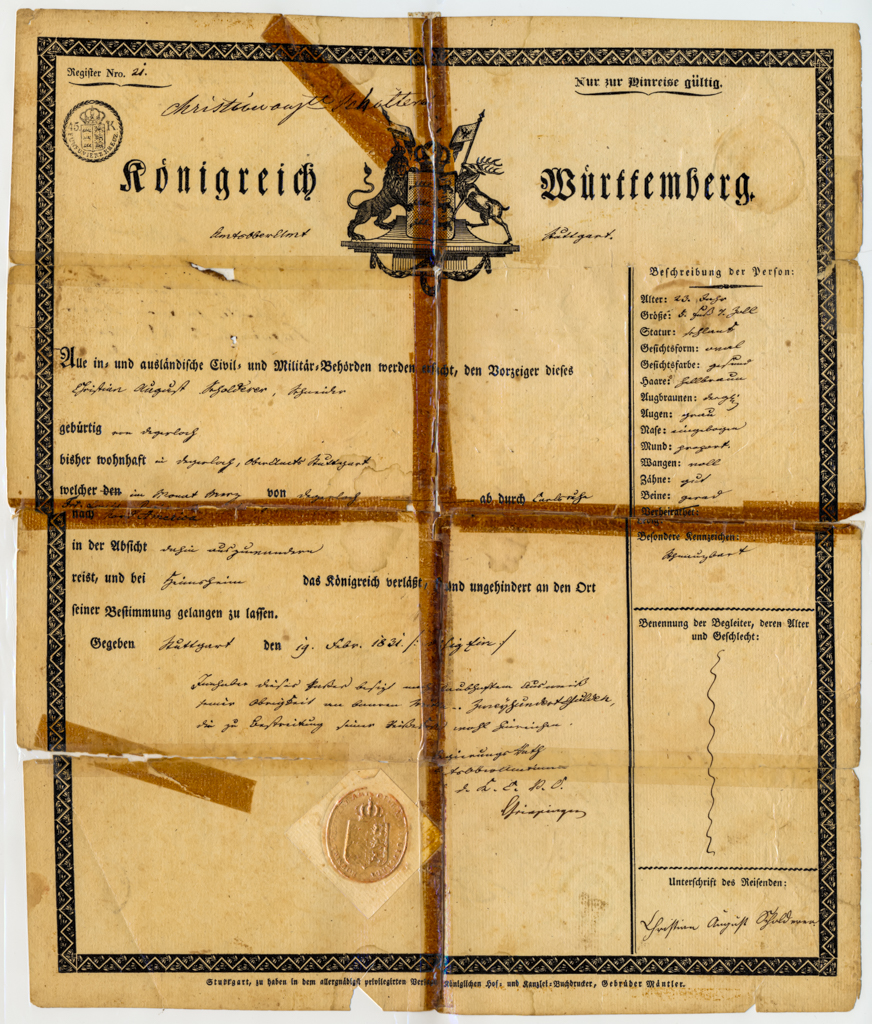 Register Nro. 21.
Nur zur Hinreise gültig.
Königreich Württemberg.
Stuttgart.
Beschreibung der Person:
Alter: 23. Jahr
Größe: 5. Fuß 7. Zoll
Statur: schlank
Gesichtsform: oval
Gesichtsfarbe: gesund
Haare: hellbraun
Augbraunen:
Augen: grau
Nase: eingebogen
Mund: proport.
Wangen: voll
Zähne: gut
Beine: gerad
Besondere Kennzeichen:
Schnauzbart
Alle in- und ausländische Civil- und Militär-Behörden werden den Vorzeiger dieses
Christian August Scholderer, Schneider
gebürtig von Degerloch
bisher wohnhaft in Degerloch, Oberamts Stuttgart
welcher den im Monat von Degerloch ab durch Carlsruhe
nach
in der Absicht dahin auszuwandern
reist, und bei Heimsheim das Königreich verläßt, und ungehindert an den Ort
seiner Bestimmung gelangen zu lassen.
Gegeben Stuttgart den 19. Febr. 1831.
Innhaber dieses Passes besizt nach Ausweis
seiner Obrigkeit an baarem Zweyhundert Gulden,
die zu Bestreitung seiner wohl hinreichen.
Benennung der Begleiter, deren Alter
und Geschlecht:
Unterschrift des Reisenden:
Christian August Scholderer
Stuttgart, zu haben in dem allergnädigst privilegirten Königlichen Hof- und Kanzlei-Buchdrucker, Gebrüder Mäntler.